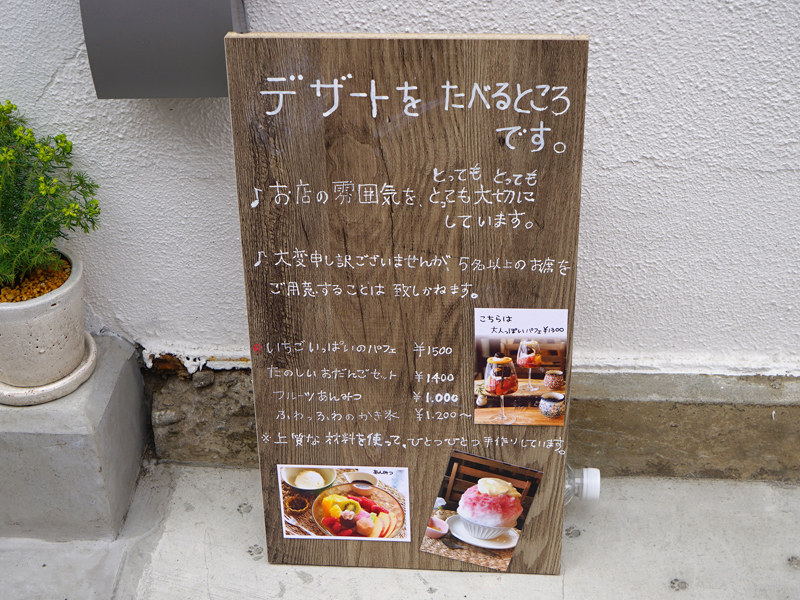 デザートを たべるところ
です。
♪お店の雰囲気を、とっても とっても
とっても大切に
しています。
♪大変申し訳ございませんが 5名以上のお席を
ご用意することは 致しかねます。
こちらは
大人っぽいパフェ¥1300
いちごいっぱいのパフェ ¥1500
たのしいおだんごセット ¥1400
フルーツあんみつ ¥1.000
ふわっふわのかき氷 ¥1.200〜
※上質な材料を使って、ひとつひとつ手作りしています。
あんみつ